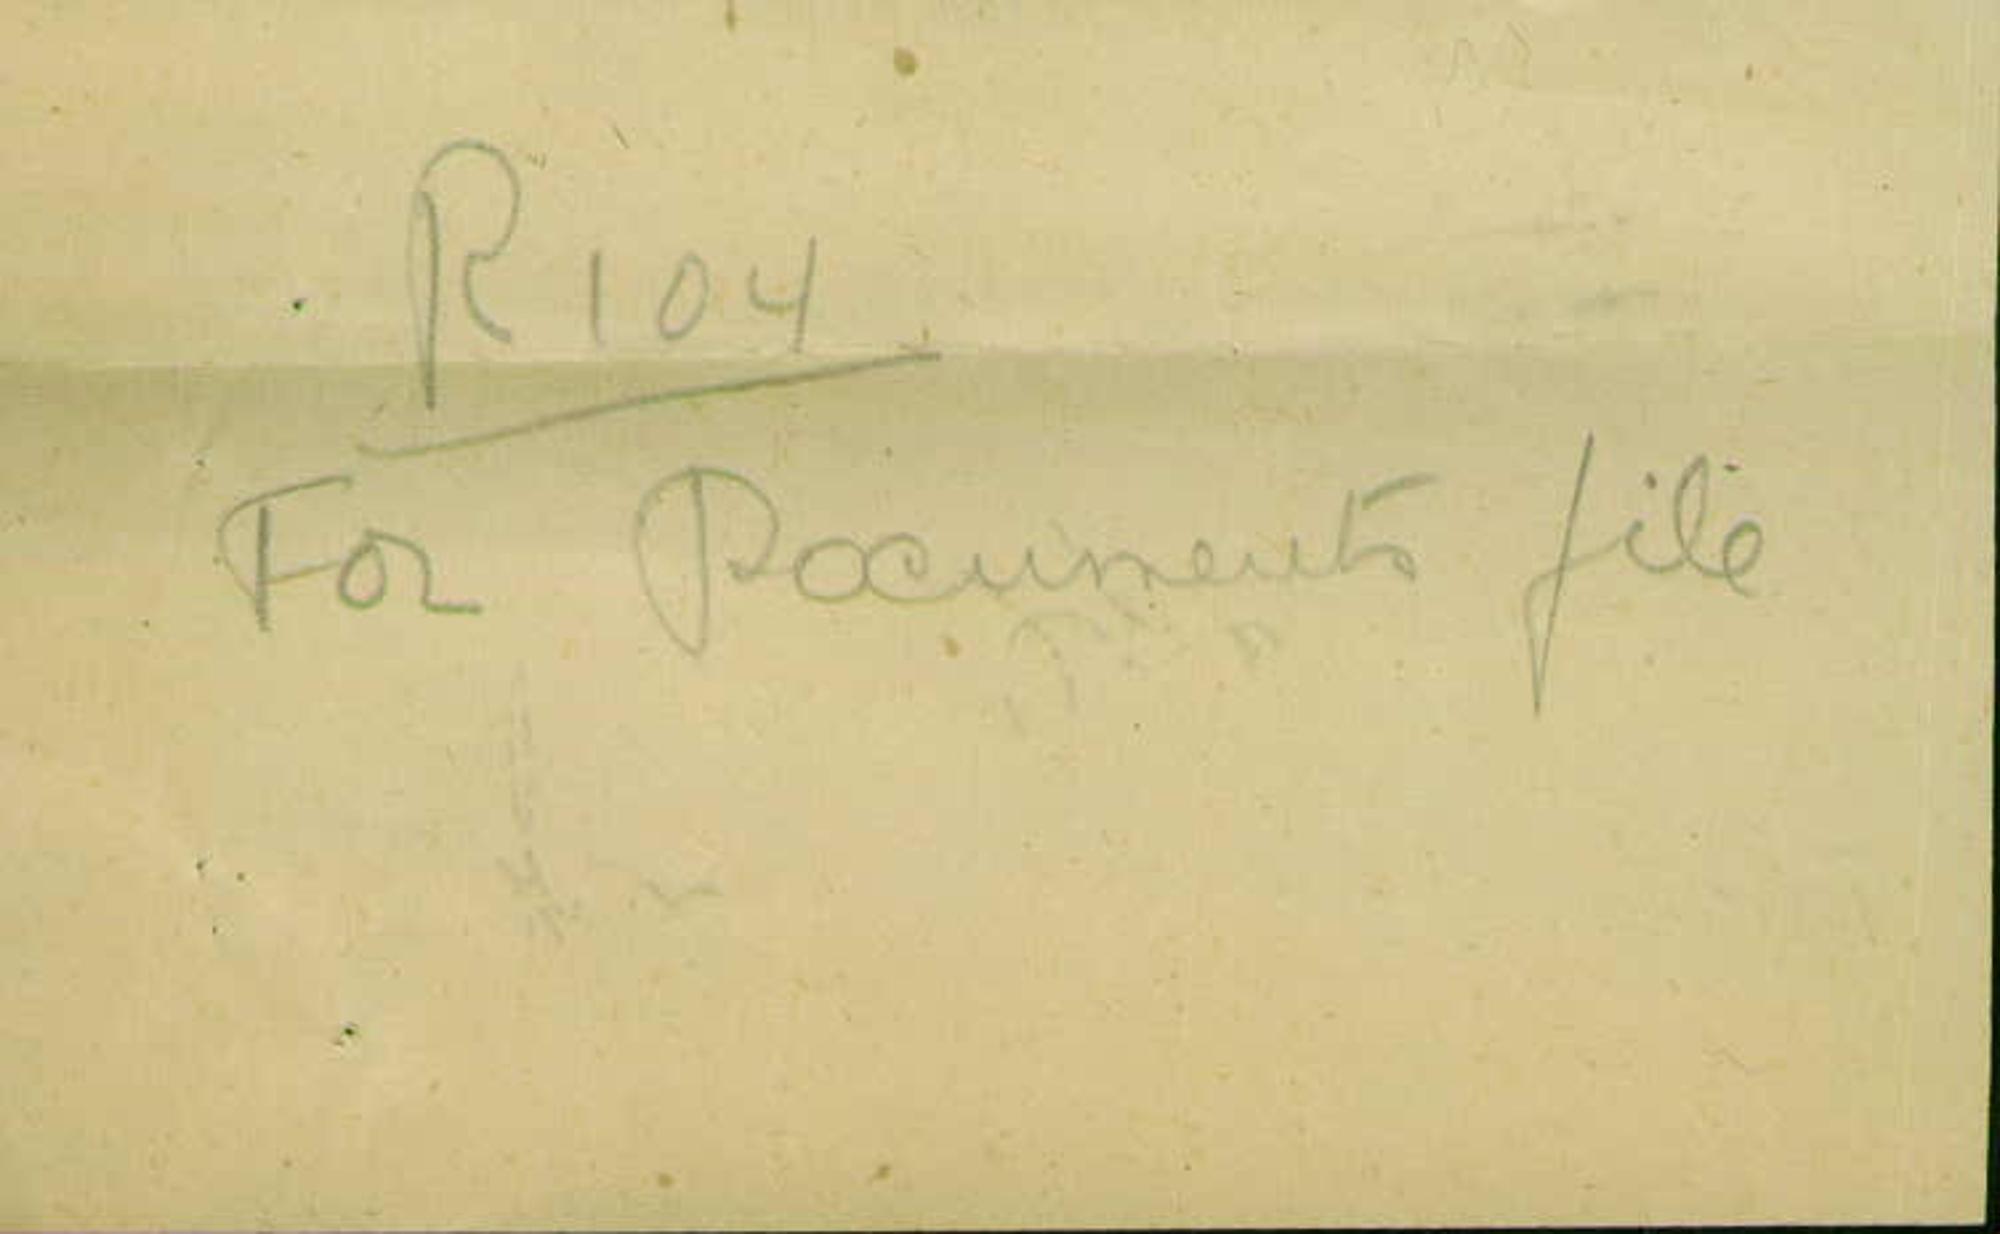 R 104
For Documents file